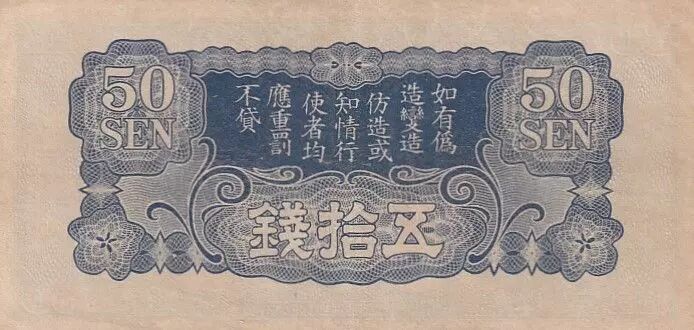 50
SEN
50
SEN
如有偽
造變造
仿造或
知情行
使者均
應重罰
不貸
五拾錢